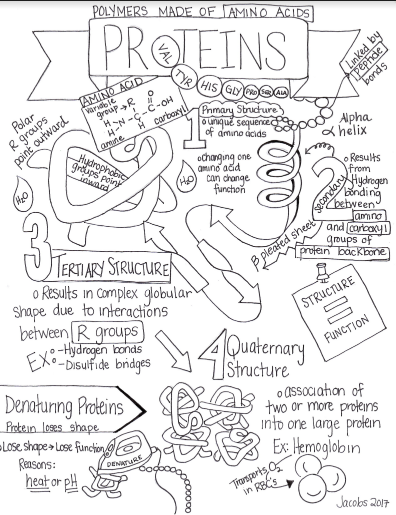 POLYMERS MADE OF AMINO ACIDS
PROTEINS
VAL
TYR
HIS
GLY
PRO
SER
ALA
Linked by
peptide
bonds
AMINO ACID
variable
group→R
O
H-N-C-C-OH
H
H
amine
carboxyl
Polar
R groups
point outward
Hydrophobic
groups point
inward
H₂O
H₂O
1
Primary Structure
o unique sequence
of amino acids
o changing one
amino acid
can change
function
Alpha
α helix
2
Secondary
o Results
from
Hydrogen
bonding
between
amino
and carboxyl
groups of
protein backbone
β pleated sheet
3 TERTIARY STRUCTURE
o Results in complex globular
shape due to interactions
between R groups
EX: -Hydrogen bonds
-Disulfide bridges
STRUCTURE
=
FUNCTION
4 Quaternary
Structure
o association of
two or more proteins
into one large protein
Ex: Hemoglobin
Transports O₂
in RBC's
Denaturing Proteins
Protein loses shape
o Lose shape→Lose function
Reasons:
heat or pH
DENATURE
Jacobs 2017